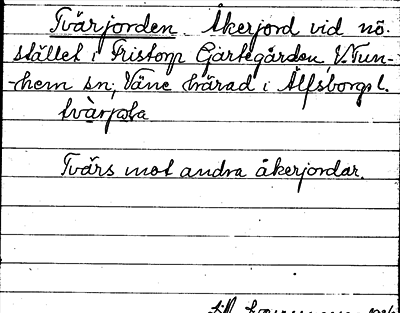 Tvärjorden. Åkerjord vid nö.
stället i Fristorp Gärtegården, V. Tun-
-hem sn, Väne härad i Älfsborgs l.
tvàrjola
Tvärs mot andra åkerjordar.